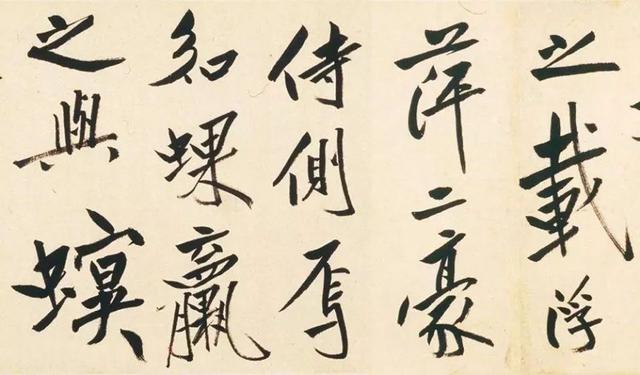 之載浮
萍二豪
侍側焉
如蜾蠃
之與螟